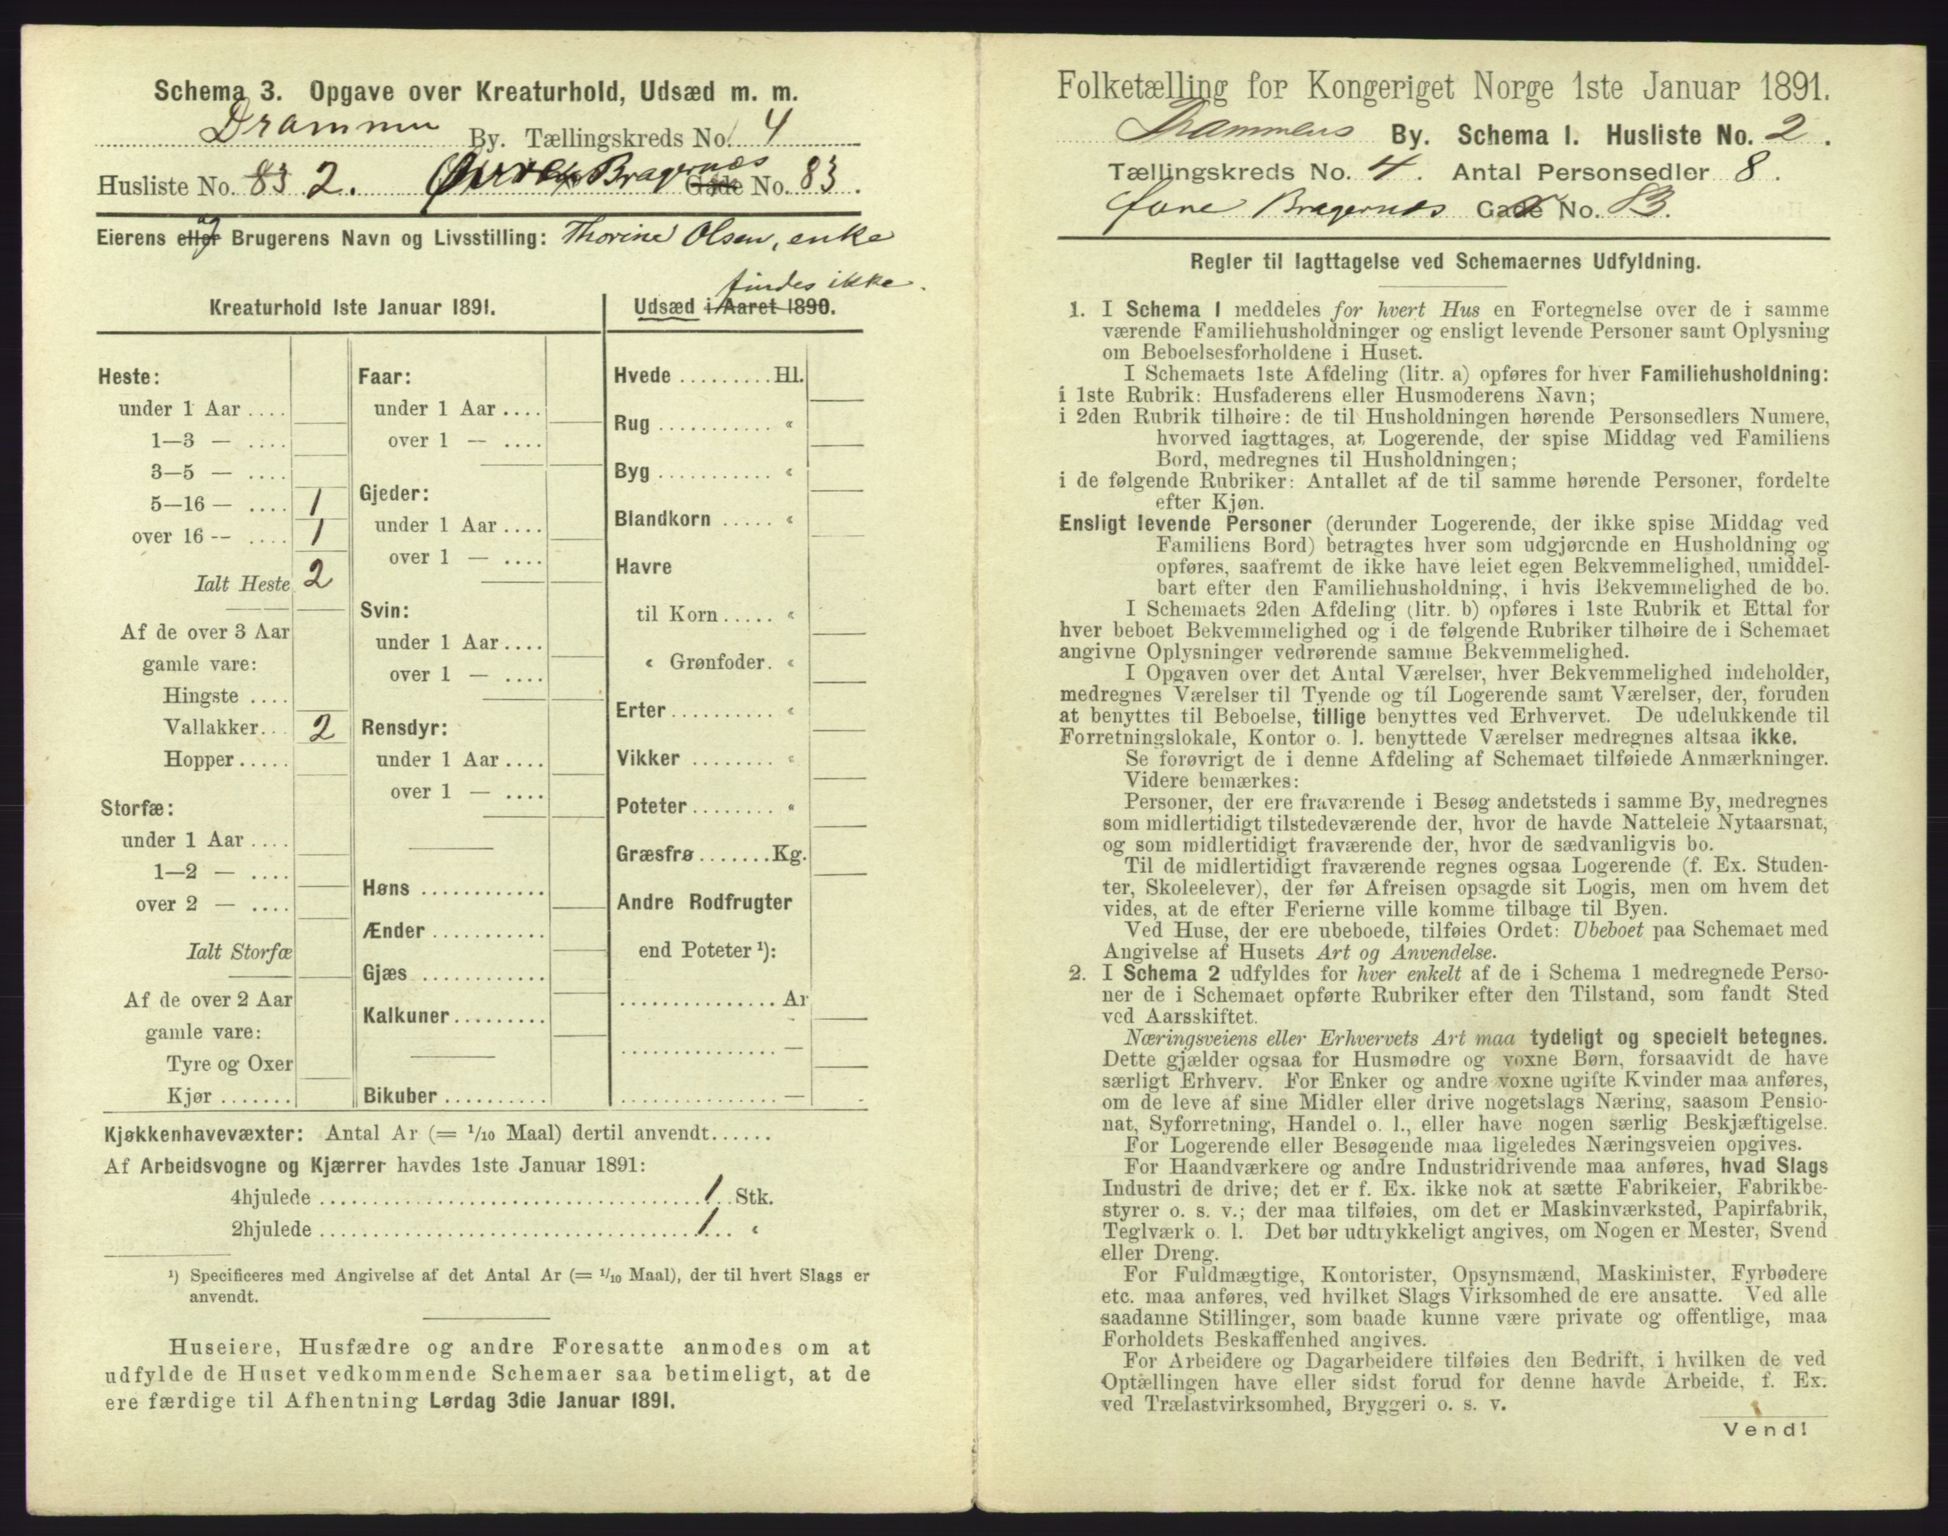 Schema 3. Opgave over Kreaturhold, Udsæd m. m.
Drammen By. Tællingskreds No. 4
Husliste No. 83 2. Øvre Bragernæs Gade No. 83.
Eierens eller og Brugerens Navn og Livsstilling: Thorine Olsen, enke
findes ikke.
Kreaturhold 1ste Januar 1891.
Udsæd i Aaret 1890.
Heste:
under 1 Aar ....
1—3 — ....
3—5 — ....
5—16 — .... 1
over 16 — .... 1
Ialt Heste 2
Af de over 3 Aar
gamle vare:
Hingste ....
Vallakker... 2
Hopper.....
Storfæ:
under 1 Aar ....
1—2 — ....
over 2 — ....
Ialt Storfæ
Af de over 2 Aar
gamle vare:
Tyre og Oxer
Kjør .......
Faar:
under 1 Aar ....
over 1 — ....
Gjeder:
under 1 Aar ....
over 1 — ....
Svin:
under 1 Aar ....
over 1 — ....
Rensdyr:
under 1 Aar ....
over 1 — ....
Høns ............
Ænder ...........
Gjæs ............
Kalkuner.........
Bikuber ..........
Hvede ......... Hl.
Rug ........... «
Byg ........... «
Blandkorn ..... «
Havre
til Korn ..... «
« Grønfoder. «
Erter.......... «
Vikker ........ «
Poteter........ «
Græsfrø ....... Kg.
Andre Rodfrugter
end Poteter ¹):
............... Ar
............... —
............... —
Kjøkkenhavevæxter: Antal Ar (= 1/10 Maal) dertil anvendt......
Af Arbeidsvogne og Kjærrer havdes 1ste Januar 1891:
4hjulede .................. 1 Stk.
2hjulede .................. 1 «
¹) Specificeres med Angivelse af det Antal Ar (= 1/10 Maal), der til hvert Slags er
anvendt.
Huseiere, Husfædre og andre Foresatte anmodes om at
udfylde de Huset vedkommende Schemaer saa betimeligt, at de
ere færdige til Afhentning Lørdag 3die Januar 1891.
Folketælling for Kongeriget Norge 1ste Januar 1891.
Drammens By. Schema 1. Husliste No. 2.
Tællingskreds No. 4. Antal Personsedler 8.
Øvre Bragernæs Gade No. 83.
Regler til Iagttagelse ved Schemaernes Udfyldning.
1. I Schema 1 meddeles for hvert Hus en Fortegnelse over de i samme
værende Familiehusholdninger og ensligt levende Personer samt Oplysning
om Beboelsesforholdene i Huset.
I Schemaets 1ste Afdeling (litr. a) opføres for hver Familiehusholdning:
i 1ste Rubrik: Husfaderens eller Husmoderens Navn;
i 2den Rubrik tilhøire: de til Husholdningen hørende Personsedlers Numere,
hvorved iagttages, at Logerende, der spise Middag ved Familiens
Bord, medregnes til Husholdningen;
i de følgende Rubriker: Antallet af de til samme hørende Personer, fordelte
efter Kjøn.
Ensligt levende Personer (derunder Logerende, der ikke spise Middag ved
Familiens Bord) betragtes hver som udgjørende en Husholdning og
opføres, saafremt de ikke have leiet egen Bekvemmelighed, umiddel-
bart efter den Familiehusholdning, i hvis Bekvemmelighed de bo.
I Schemaets 2den Afdeling (litr. b) opføres i 1ste Rubrik et Ettal for
hver beboet Bekvemmelighed og i de følgende Rubriker tilhøire de i Schemaet
angivne Oplysninger vedrørende samme Bekvemmelighed.
I Opgaven over det Antal Værelser, hver Bekvemmelighed indeholder,
medregnes Værelser til Tyende og til Logerende samt Værelser, der, foruden
at benyttes til Beboelse, tillige benyttes ved Erhvervet. De udelukkende til
Forretningslokale, Kontor o. l. benyttede Værelser medregnes altsaa ikke.
Se forøvrigt de i denne Afdeling af Schemaet tilføiede Anmærkninger.
Videre bemærkes:
Personer, der ere fraværende i Besøg andetsteds i samme By, medregnes
som midlertidigt tilstedeværende der, hvor de havde Natteleie Nytaarsnat,
og som midlertidigt fraværende der, hvor de sædvanligvis bo.
Til de midlertidigt fraværende regnes ogsaa Logerende (f. Ex. Studen-
ter, Skoleelever), der før Afreisen opsagde sit Logis, men om hvem det
vides, at de efter Ferierne ville komme tilbage til Byen.
Ved Huse, der ere ubeboede, tilføies Ordet: Ubeboet paa Schemaet med
Angivelse af Husets Art og Anvendelse.
2. I Schema 2 udfyldes for hver enkelt af de i Schema 1 medregnede Perso-
ner de i Schemaet opførte Rubriker efter den Tilstand, som fandt Sted
ved Aarsskiftet.
Næringsveiens eller Erhvervets Art maa tydeligt og specielt betegnes.
Dette gjælder ogsaa for Husmødre og voxne Børn, forsaavidt de have
særligt Erhverv. For Enker og andre voxne ugifte Kvinder maa anføres,
om de leve af sine Midler eller drive nogetslags Næring, saasom Pensio-
nat, Syforretning, Handel o. l., eller have nogen særlig Beskjæftigelse.
For Logerende eller Besøgende maa ligeledes Næringsveien opgives.
For Haandværkere og andre Industridrivende maa anføres, hvad Slags
Industri de drive; det er f. Ex. ikke nok at sætte Fabrikeier, Fabrikbe-
styrer o. s. v.; der maa tilføies, om det er Maskinværksted, Papirfabrik,
Teglværk o. l. Det bør udtrykkeligt angives, om Nogen er Mester, Svend
eller Dreng.
For Fuldmægtige, Kontorister, Opsynsmænd, Maskinister, Fyrbødere
etc. maa anføres, ved hvilket Slags Virksomhed de ere ansatte. Ved alle
saadanne Stillinger, som baade kunne være private og offentlige, maa
Forholdets Beskaffenhed angives.
For Arbeidere og Dagarbeidere tilføies den Bedrift, i hvilken de ved
Optællingen have eller sidst forud for denne havde Arbeide, f. Ex.
ved Trælastvirksomhed, Bryggeri o. s. v.
Vend!